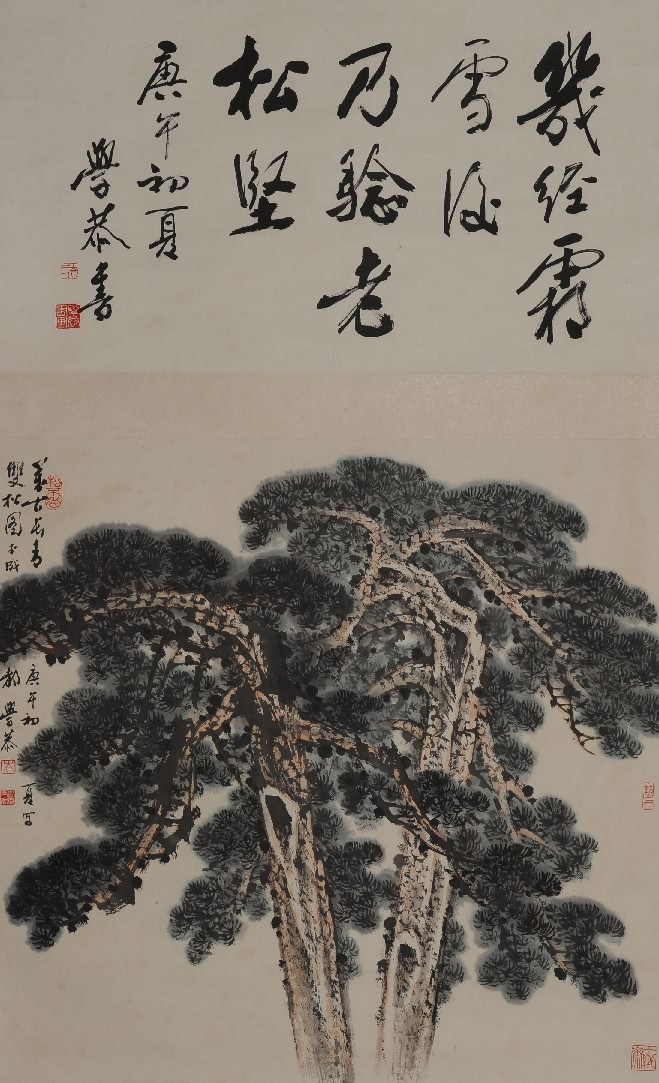 幾经霜
雪後
乃驗老
松堅
庚午初夏
學恭書
萬古長青
雙松圖
庚午初
夏写
學恭